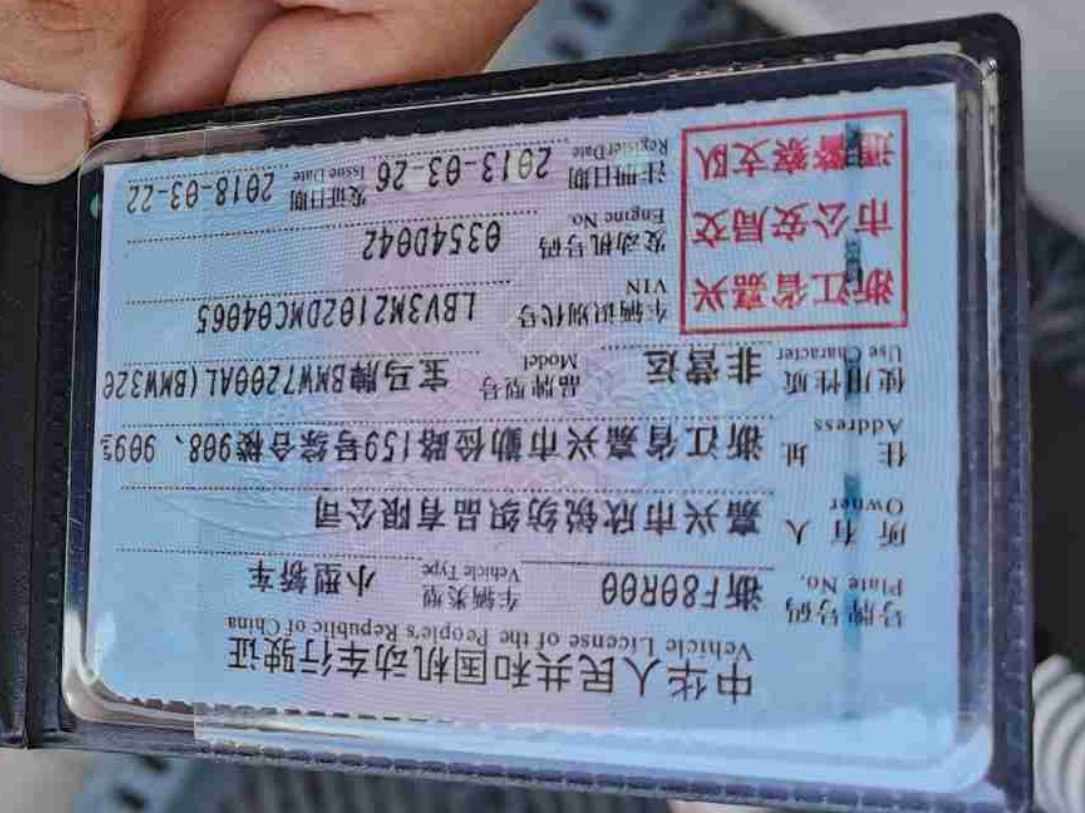 中华人民共和国机动车行驶证
Vehicle License of the People's Republic of China
号牌号码 浙F80R00 车辆类型 小型轿车
Plate No. Vehicle Type
所有人 嘉兴市欣锐纺织品有限公司
Owner
住址 浙江省嘉兴市勤俭路159号综合楼908、909
Address
使用性质 非营运 品牌型号 宝马牌BMW7200AL(BMW320
Use Character Model
浙江省嘉兴
市公安局交
通警察支队
车辆识别代号 LBV3M2102DMC04065
VIN
发动机号码 0354D042
Engine No.
注册日期 2013-03-26 发证日期 2018-03-22
Register Date Issue Date